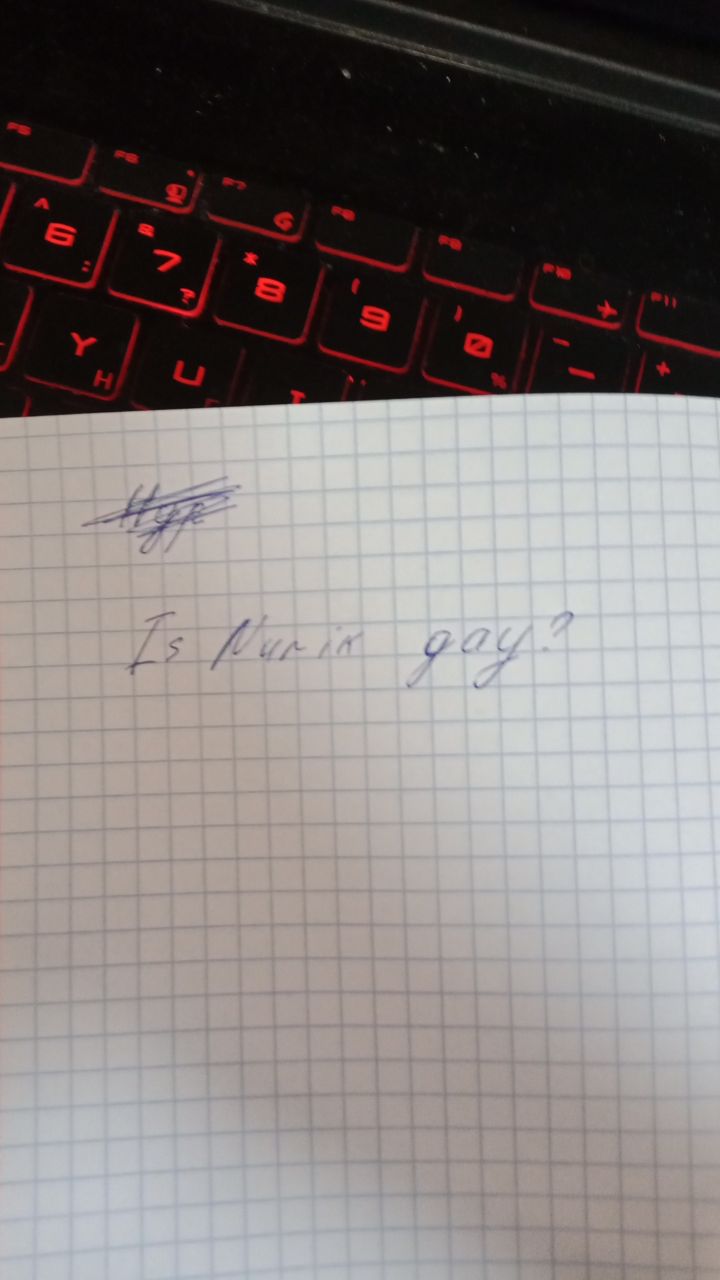 F5 F6 F7 F8 F9 F10 F11
^ 6 : & 7 ? * 8 ( 9 ) 0 % - +
Y H U
Нур
Is Nurik gay?